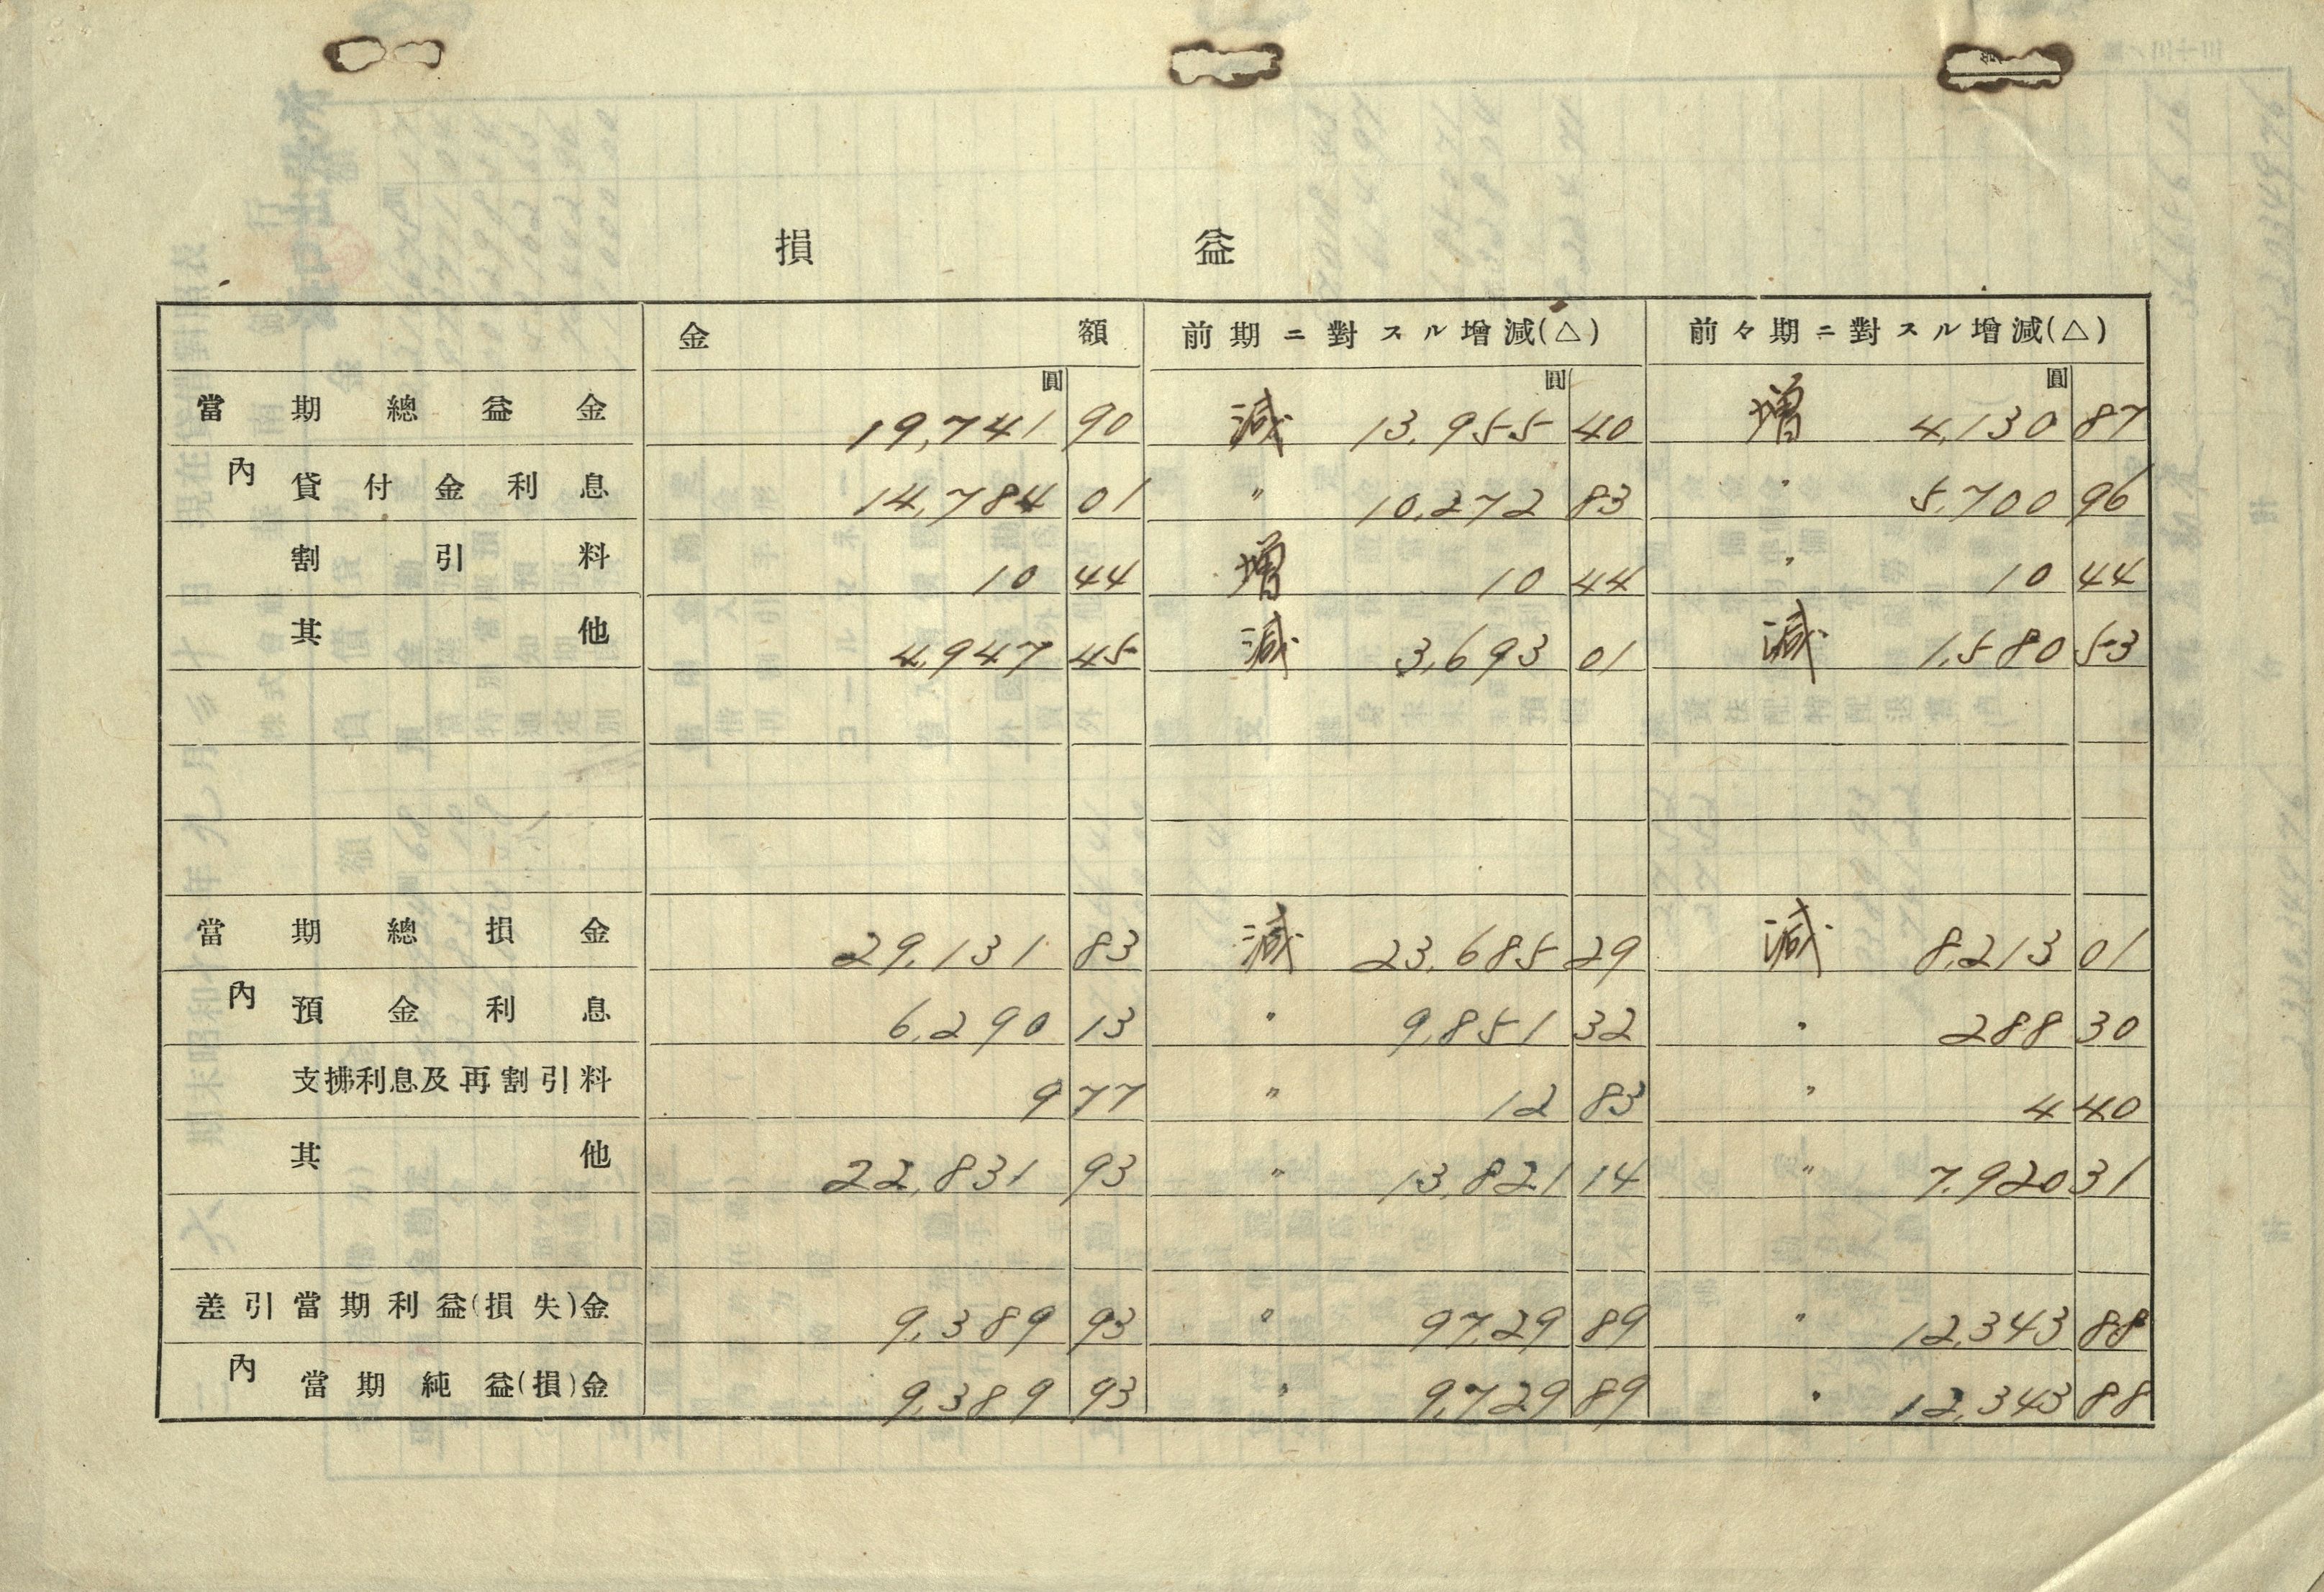 損益
金額 前期ニ對スル增減(△) 前々期ニ對スル增減(△)
圓 圓 圓
當期總益金 19,741 90 減 13,955 40 增 4,130 87
內 貸付金利息 14,784 01 〃 10,272 83 〃 5,700 96
割引料 10 44 增 10 44 〃 10 44
其他 4,947 45 減 3,693 01 減 1,580 53
當期總損金 29,131 83 減 23,685 29 減 8,213 01
內 預金利息 6,290 13 〃 9,851 32 〃 288 30
支拂利息及再割引料 9 77 〃 12 83 〃 4 40
其他 22,831 93 〃 13,821 14 〃 7,920 31
差引當期利益(損失)金 9,389 93 〃 97,29 89 〃 12,343 88
內 當期純益(損)金 9,389 93 〃 9,729 89 〃 12,343 88